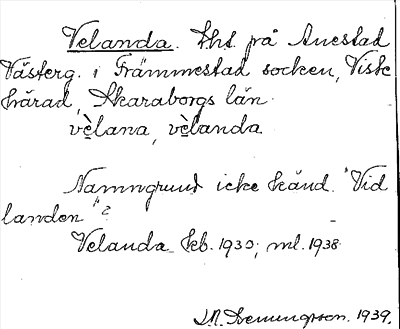 Velanda. Lht. på Anestad
Västerg. i Främmestad socken, Viste
härad, Skaraborgs län.
vèlana, vèlanda.
Namngrund icke känd. "Vid
landen"?
Velanda kb. 1930; ml. 1938.
1939.